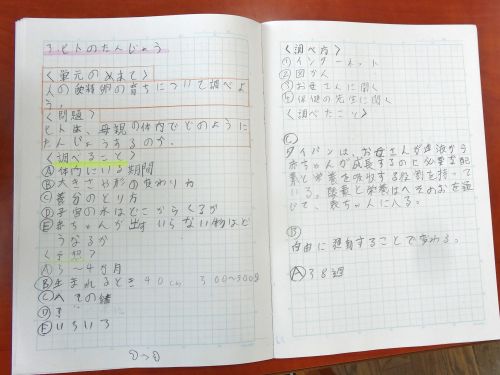 3.ヒトのたんじょう
〈単元のめあて〉
人の受精卵の育ちについて調べよ
う。
〈問題〉
ヒトは、母親の体内でどのように
たんじょうするのか。
〈調べること〉
Ⓐ体内にいる期間
Ⓑ大きさや形の変わり方
Ⓒ養分のとり方
Ⓓ子宮の水はどこからくるか
Ⓔ赤ちゃんが出すいらない物はど
うなるか
〈予想〉
Ⓐ3〜4か月
Ⓑ生まれるとき 40cm 300〜500g
Ⓒへその緒
Ⓓ
Ⓔいろいろ
〈調べ方〉
①インターネット
②図かん
③お母さんに聞く
④保健の先生に聞く
〈調べたこと〉
Ⓒ
タイバンは、お母さんが血液から
赤ちゃんが成長するのに必要な酸
素と栄養を吸収する役割を持って
いる。酸素と栄養はへそのおを通
じて、赤ちゃんに入る。
Ⓑ
自由に
することで変わる。
Ⓐ38週